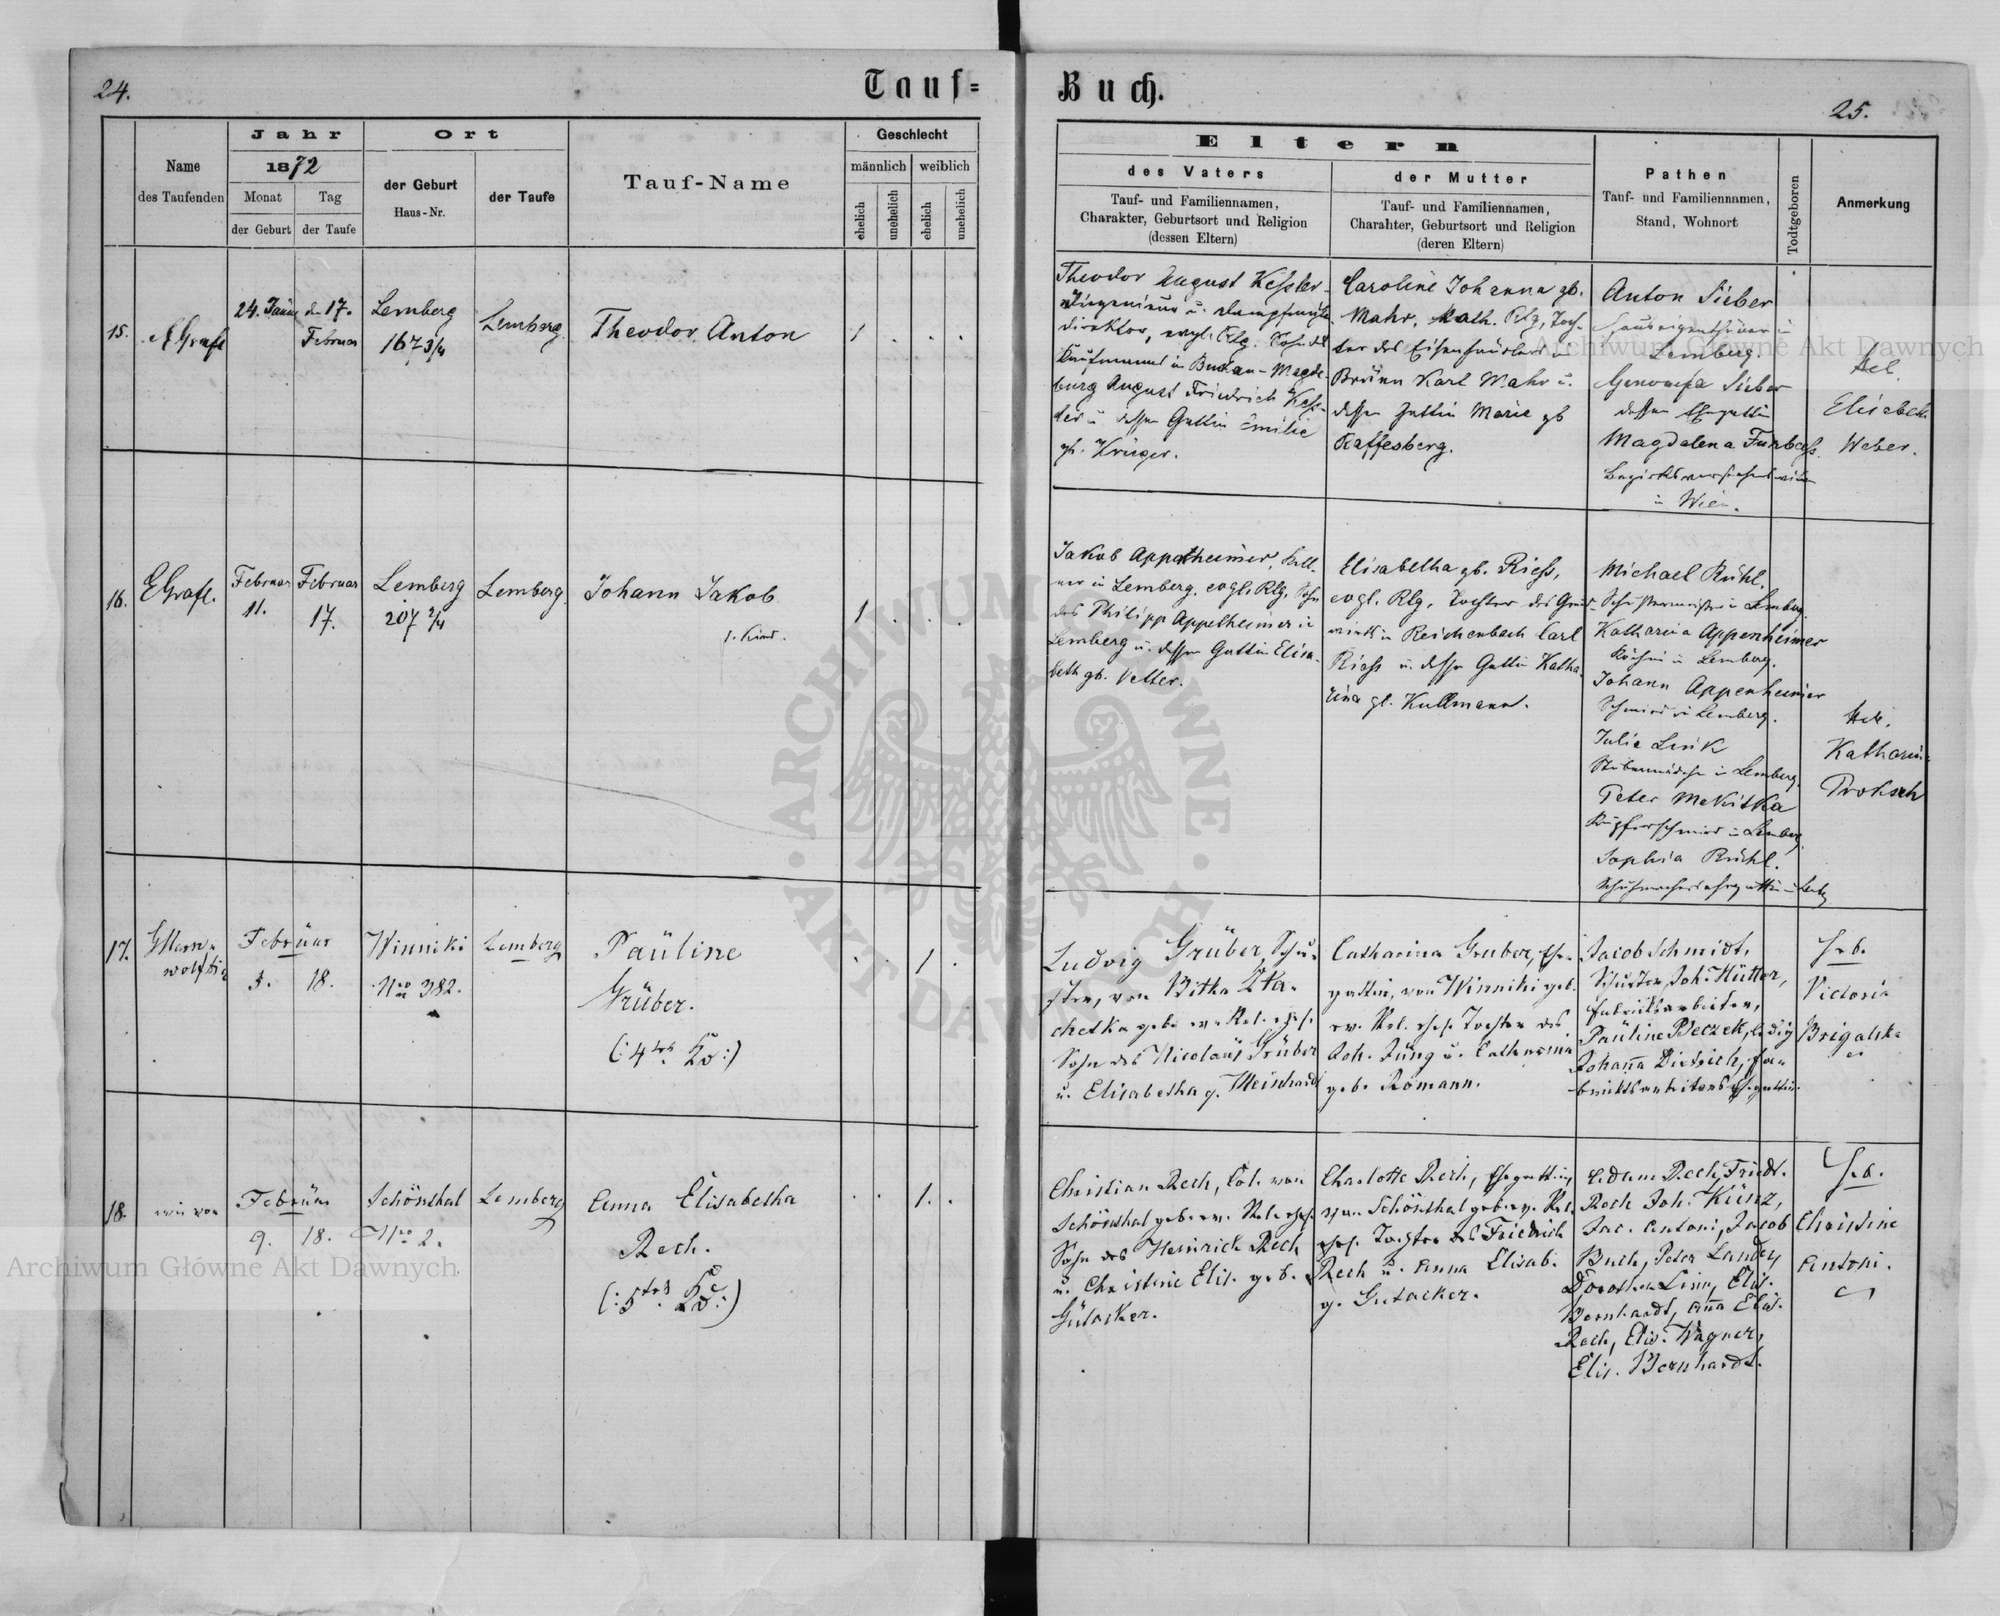 24.
Tauf=
Buch.
25.
Name
des Taufenden
Jahr
1872
Monat
Tag
der Geburt
der Taufe
Ort
der Geburt
Haus-Nr.
der Taufe
Tauf-Name
Geschlecht
männlich
weiblich
ehelich
unehelich
ehelich
unehelich
Eltern
des Vaters
Tauf- und Familiennamen,
Charakter, Geburtsort und Religion
(dessen Eltern)
der Mutter
Tauf- und Familiennamen,
Charakter, Geburtsort und Religion
(deren Eltern)
Pathen
Tauf- und Familiennamen,
Stand, Wohnort
Todtgeboren
Anmerkung
15.
24.
17.
Februar
Lemberg
167 3/4
Lemberg
Theodor Anton
1
Theodor August Kessler
direktor, evgl. Rlg. Sohn des
Kaufmanns in Buckau-Magde-
burg August Friedrich Kess-
ler u. dessen Gattin Emilie
gb. Krüger.
Caroline Johanna gb.
Mahr, kath. Rlg, Toch-
ter des
Brünn Karl Mahr u.
dessen Gattin Marie gb
Raffesberg.
Anton Sieber
Lemberg.
Genovefa Sieber
dessen Ehegattin
Magdalena
in Wien.
Heb.
Weber.
16.
EGrafl.
Februar
11.
Februar
17.
Lemberg
207 2/4
Lemberg
Johann Jakob
1. Kind.
1
Jakob Appenheimer, Kell-
ner in Lemberg, evgl. Rlg, Sohn
des Philipp Appelheimer in
Lemberg u. dessen Gattin Elisa-
beth gb. Vetter.
Elisabetha gb. Riess,
evgl. Rlg, Tochter des
in Reichenbach Carl
Riess u. dessen Gattin Katha-
rina gb. Kullmann.
Michael Rühl.
in Lemberg
Katharina Appenheimer
Köchin in Lemberg.
Johann Appenheimer
Schmied in Lemberg.
Julie Link
Stubenmädchen in Lemberg
Peter Mekitka
Kupferschmied in Lemberg
Sophia Rühl.
Heb.
Katharina
Proksch
17.
Februar
3.
18.
Winniki
Nro 382.
Lemberg
Pauline
Gruber.
(: 4tes Kd :)
1
Ludwig Gruber, Schu-
ster, von
Sohn des Nicolaus Gruber
u. Elisabetha g. Meinhard
Catharina Gruber, Ehe-
gattin, von Winniki geb.
ev. Rel. ehel. Tochter des
Joh. Jung u. Catharina
geb. Romann.
Jacob Schmidt,
Schuster, Joh. Hütter,
Fabriksarbeiter,
Pauline Reczek, ledig
Johanna Dietrich, Fa-
briksarbeitersehegattin.
Heb.
Victoria
18.
wie von
Februar
9.
18.
Schönthal
Nro 2.
Lemberg
Anna Elisabetha
Rech.
(: 5tes Kd :)
1
Christian Rech, Col. von
Schönthal geb. ev. Rel. ehel.
Sohn des Heinrich Rech
u. Christine Elis. geb.
Gutacker.
Charlotte Rech, Ehegattin,
von Schönthal geb. ev. Rel.
ehel. Tochter des Friedrich
Rech u. Anna Elisab.
g. Gutacker.
Adam Rech, Friedr.
Rech Joh. Künz,
Jac. Antoni, Jacob
Buch, Peter Landey
Dorothea Linn, Elis.
Bernhardt, Anna Elis.
Rech, Elis. Wagner,
Elis. Bernhardt.
Heb.
Christine
Antoni.
Archiwum Główne Akt Dawnych
Archiwum Główne Akt Dawnych
ARCHIWUM GŁÓWNE AKT DAWNYCH